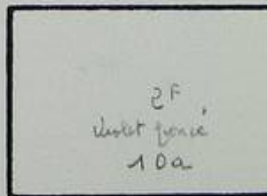 2F
violet foncé
10a